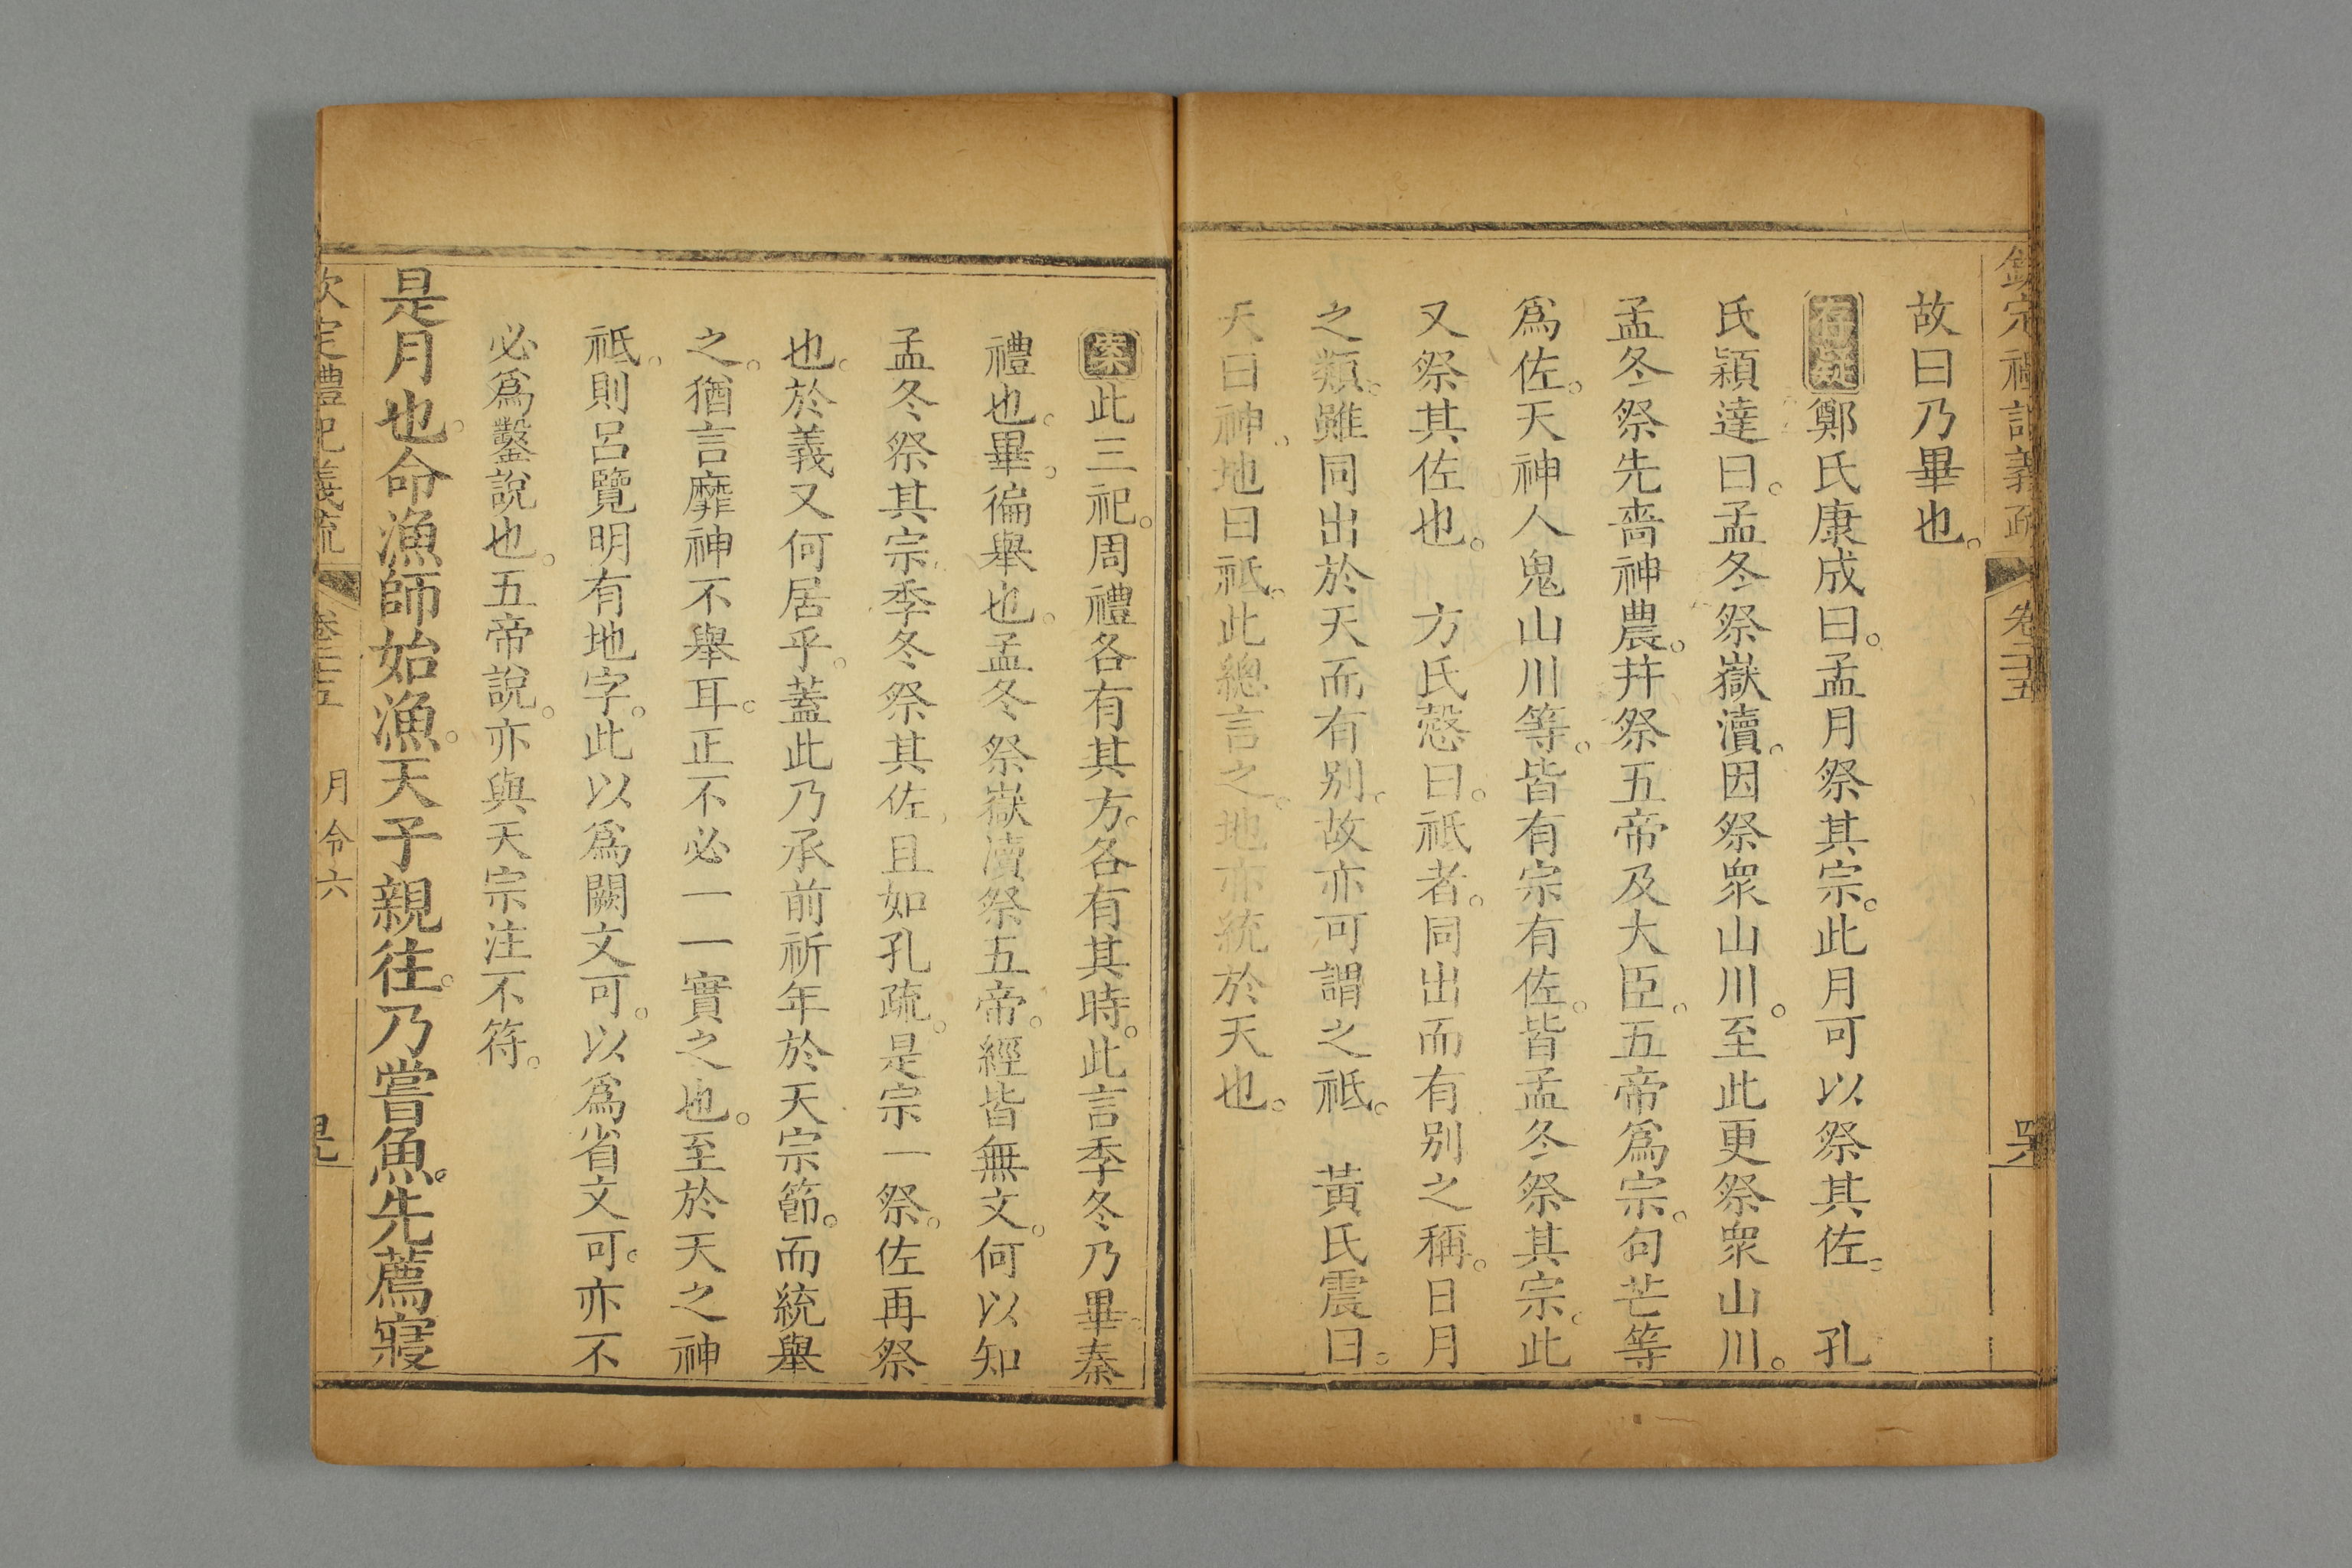 欽定禮記義疏 卷二十五
故曰乃畢也。
存疑鄭氏康成曰。孟月祭其宗。此月可以祭其佐。 孔
氏穎達曰。孟冬祭嶽瀆。因祭衆山川。至此更祭衆山川。
孟冬祭先嗇神農。幷祭五帝及大臣。五帝爲宗。句芒等
爲佐。天神人鬼山川等。皆有宗有佐。皆孟冬祭其宗。此
又祭其佐也。 方氏慤曰。祇者。同出而有別之稱。日月
之類。雖同出於天而有別。故亦可謂之祇。 黃氏震曰。
天曰神。地曰祇。此總言之。地亦統於天也。
案此三祀。周禮各有其方。各有其時。此言季冬乃畢秦
禮也。畢。徧舉也。孟冬祭嶽瀆祭五帝。經皆無文。何以知
孟冬祭其宗。季冬祭其佐。且如孔疏。是宗一祭。佐再祭
也。於義又何居乎。蓋此乃承前祈年於天宗節。而統舉
之。猶言靡神不舉耳。正不必一一實之也。至於天之神
祇。則呂覽明有地字。此以爲闕文可。以爲省文可。亦不
必爲鑿說也。五帝說。亦與天宗注不符。
是月也。命漁師始漁。天子親往。乃嘗魚。先薦寢
欽定禮記義疏 卷二十五 月令六